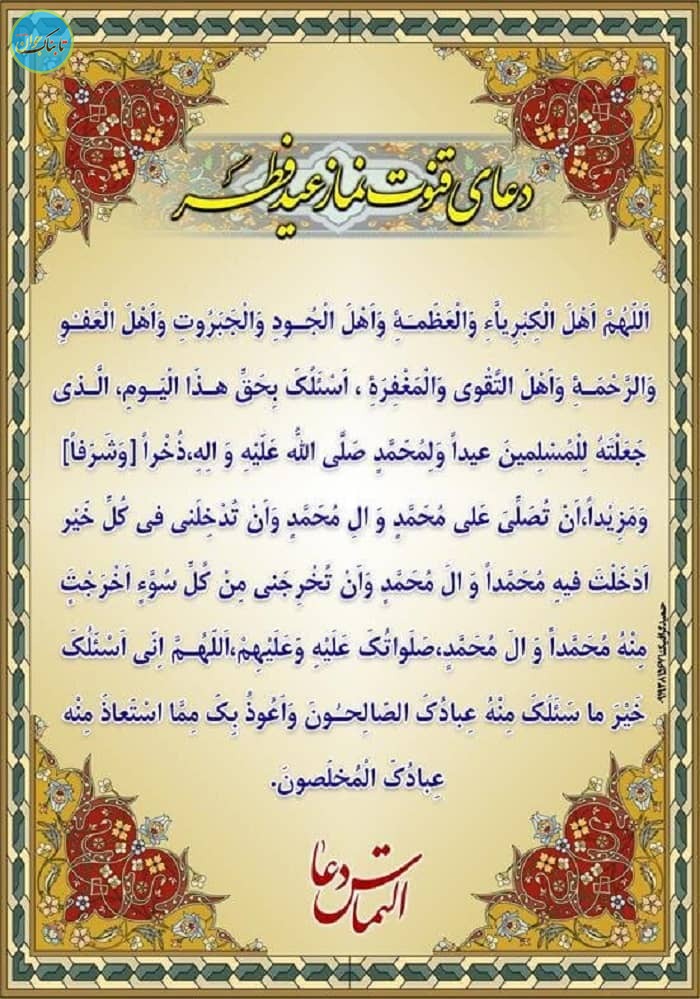 تابناک جوان
دعای قنوت نماز عید فطر
اَللّهُمَّ اَهْلَ الْکِبْرِیاَّءِ وَالْعَظَمَـةِ وَاَهْلَ الْجُـودِ وَالْجَبَرُوتِ وَاَهْلَ الْعَفْـوِ
وَالرَّحْمَـةِ وَاَهْلَ التَّقْوی وَالْمَغْفِرَةِ ، اَسْئَلُکَ بِحَقِّ هـذَا الْیَـومِ، الَّـذی
جَعَلْتَهُ لِلْمُسْلِمینَ عیداً وَلِمُحَمَّدٍ صَلَّی اللّهُ عَلَیْهِ وَ الِهِ،ذُخْراً [وَشَرَفاً]
وَمَزِیْداً،اَنْ تُصَلِّیَ عَلی مُحَمَّدٍ وَ الِ مُحَمَّدٍ وَاَنْ تُدْخِلَنی فی کُلِّ خَیْرٍ
اَدْخَلْتَ فیهِ مُحَمَّداً وَ الَ مُحَمَّدٍ وَاَنْ تُخْرِجَنی مِنْ کُلِّ سُوَّءٍ اَخْرَجْتَ
مِنْهُ مُحَمَّداً وَ الَ مُحَمَّدٍ،صَلَواتُکَ عَلَیْهِ وَعَلَیْهِمْ،اَللّهُـمَّ اِنّی اَسْئَلُکَ
خَیْرَ ما سَئَلَکَ مِنْهُ عِبادُکَ الصّالِحُـونَ وَاَعُوذُ بِکَ مِمَّا اسْتَعاذَ مِنْهُ
عِبادُکَ الْمُخلَصونَ.
التماس دعا